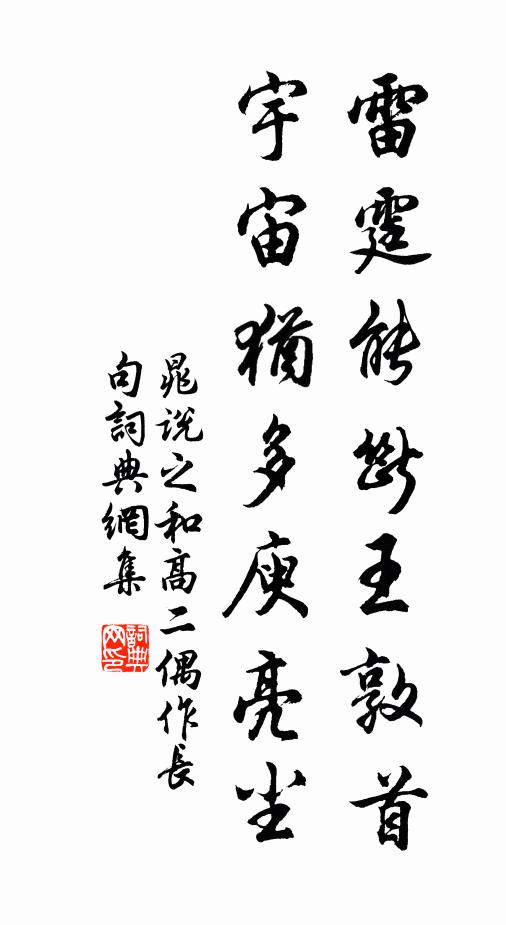 雷霆能斷王敦首
宇宙猶多庾亮尘
晁说之和高二偶作長
句詞典網集
詞典
网印